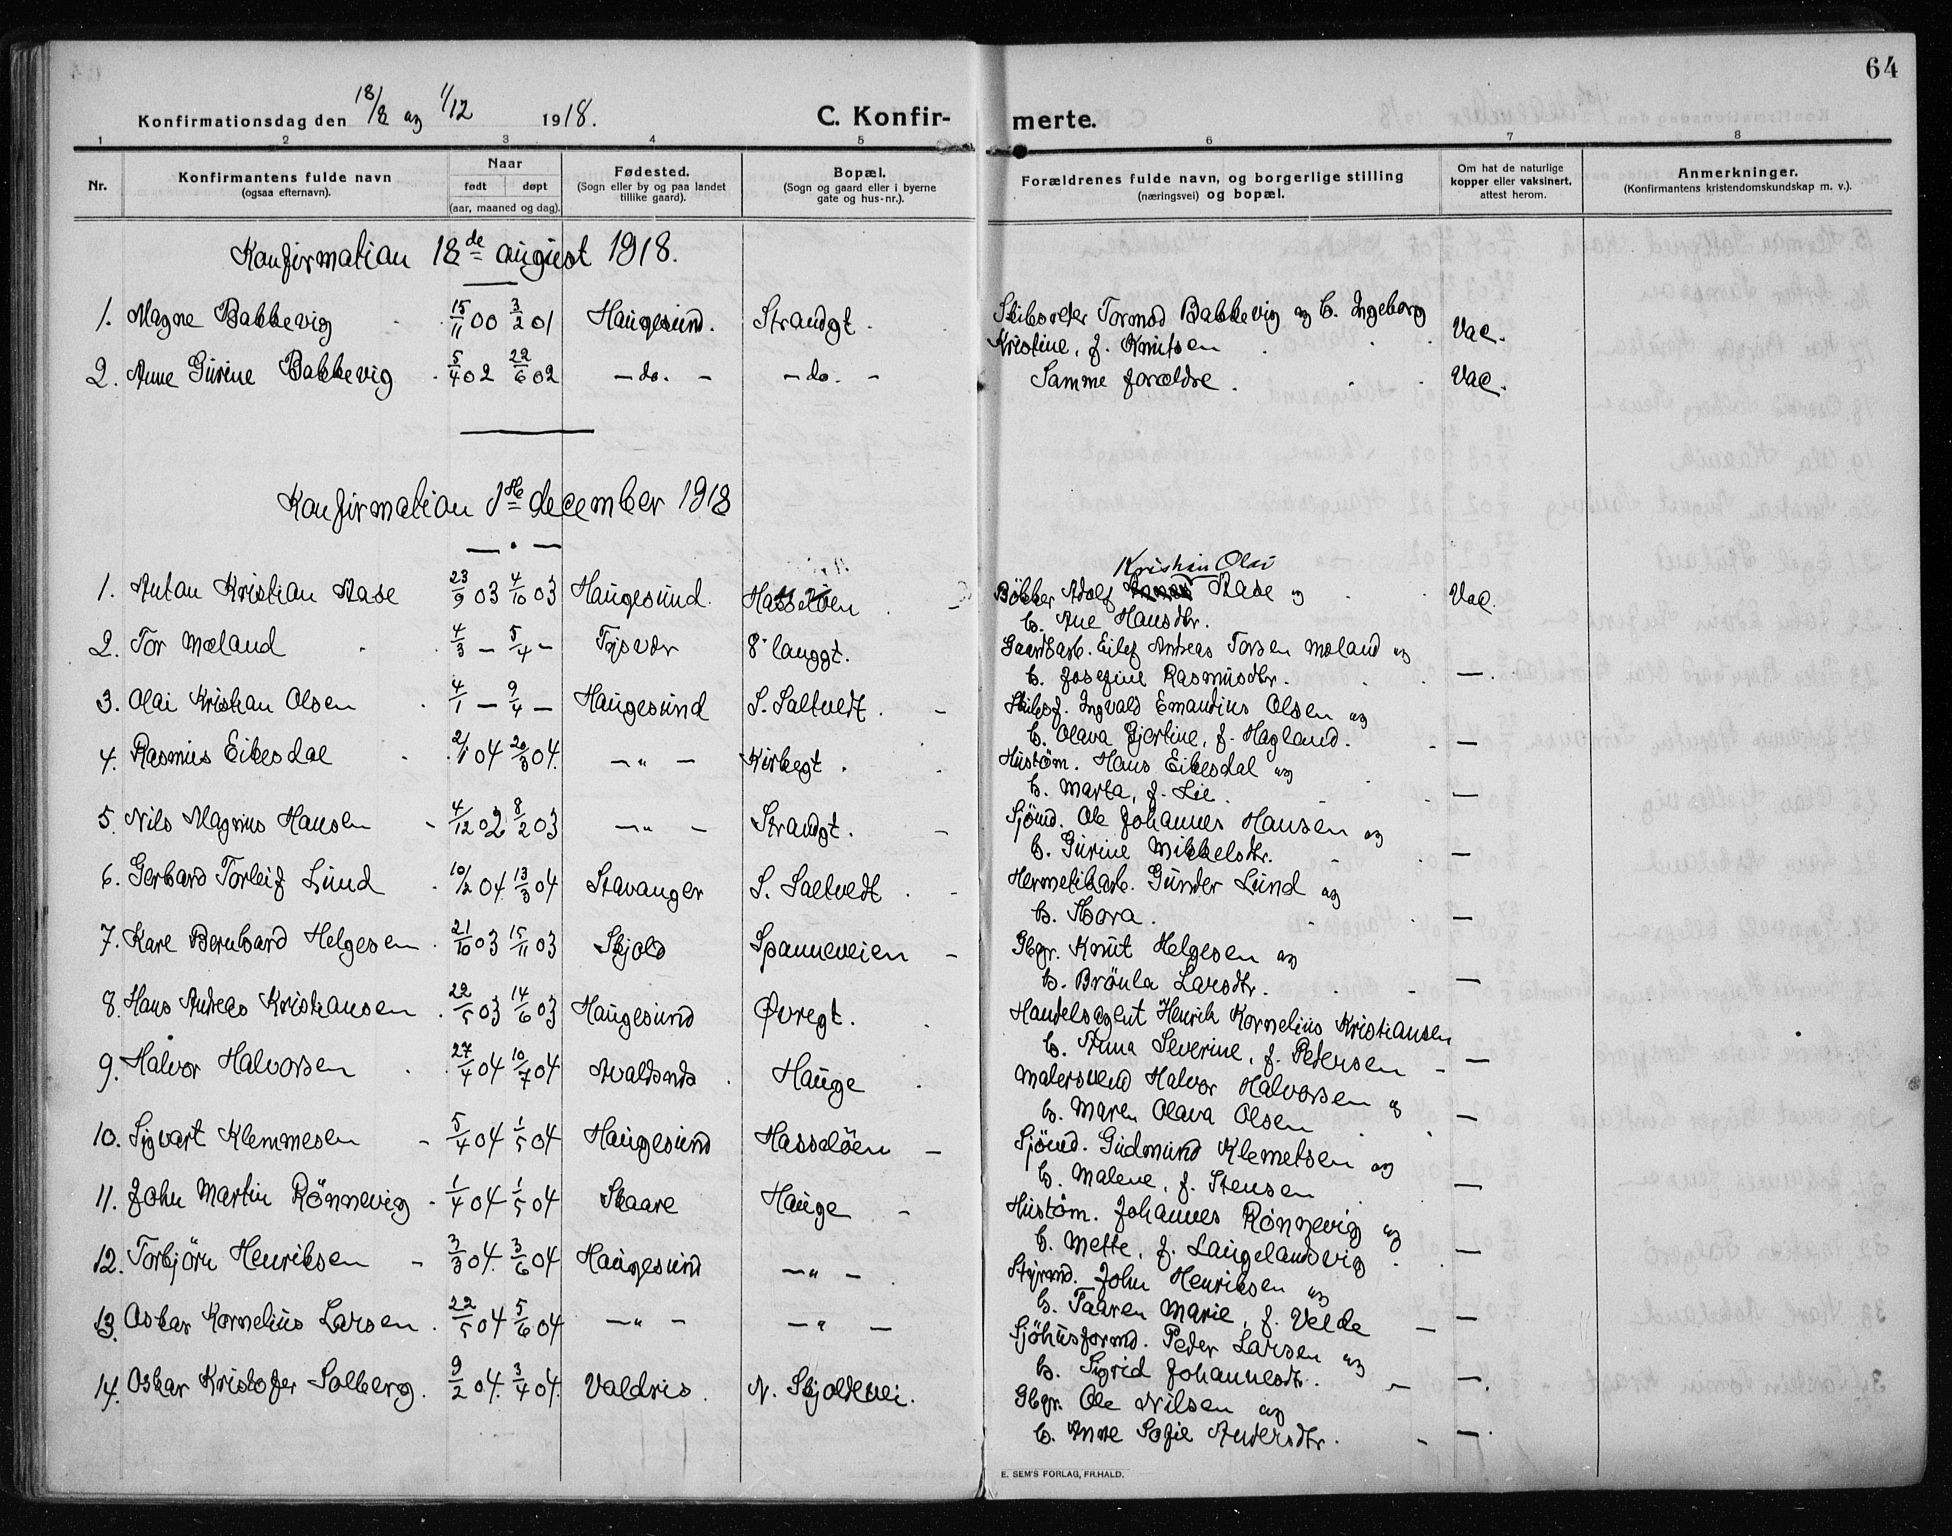 64
Konfirmationsdag den 18/8 og 1/12 1918. C. Konfirmerte.
1 2 3 4 5 6 7 8
Nr. Konfirmantens fulde navn (ogsaa efternavn). Naar født døpt (aar, maaned og dag). Fødested. (Sogn eller by og paa landet tillike gaard). Bopæl. (Sogn og gaard eller i byerne gate og hus-nr.). Forældrenes fulde navn, og borgerlige stilling (næringsvei) og bopæl. Om hat de naturlige kopper eller vaksinert, attest herom. Anmerkninger. (Konfirmantens kristendomskundskap m. v.).
Konfirmation 18de august 1918.
1. Magne Bakkevig 15/11 00 3/2 01 Haugesund. Strandgt. Skibsreder Tormod Bakkevig og h. Ingeborg
Kristine, f. Knutsen Vac.
2. Anne Gurine Bakkevig 5/4 02 22/6 02 - do. - - do. - Samme forældre. Vac.
Konfirmation 1ste december 1918
Kristian Olai
1. Anton Kristian Aase 23/9 03 4/10 03 Haugesund. Hasseløen Bökker Adolf Aase og
h. Ane Hansdtr. Vac.
2. Tor Mæland 4/3 - 5/4 - Tysvær S. langgt. Gaardbarb. Eilef Andreas Torsen Mæland og
h. Josefine Rasmusdtr. -
3. Olai Kristian Olsen 4/1 - 9/4 - Haugesund S. Saltvedt. Skibsf. Ingvald Emandius Olsen og
h. Olava Gjertine, f. Hagland. -
4. Rasmus Eikesdal 2/1 04 20/3 04. - " - Kirkegt. Hustöm. Hans Eikesdal og
h. Marta, f. Lie. -
5. Nils Magnus Hansen 4/12 02 8/2 03 - " - Strandgt. Sjömd. Ole Johannes Hansen og
h. Gurine Mikkelsdtr. -
6. Gerhard Torleif Lund 10/2 04. 13/3 04 Stavanger S. Saltvedt Hermetikarb. Gunder Lund og
h. Thora. -
7. Kare Bernhard Helgesen 21/10 03 15/11 03 Skjold Spanneveien Gbgr. Knut Helgesen og
h. Brönla Larsdtr. -
8. Hans Andreas Kristiansen 22/5 03 14/6 03 Haugesund Øvregt. Handelsagent Henrik Kornelius Kristiansen
h. Anna Severine, f. Petersen -
9. Halvor Halvorsen 27/4 04 10/7 04 Avaldsnes Hauge Malersvend Halvor Halvorsen og
h. Maren Olava Olsen -
10. Sigvart Klemmesen 5/4 04 1/5 04 Haugesund Hasselöen Sjömd. Gudmund Klemetsen og
h. Malene, f. Stensen -
11. John Martin Rønnevig 1/4 04 1/5 04 Skaare Hauge Hustöm. Johannes Rønnevig og
h. Mette, f. Laugelandsvig -
12. Torbjörn Henriksen 3/3 04. 3/6 04 Haugesund - " - Styrmd. John Henriksen og
h. Taaren Marie, f. Velde -
13. Oskar Kornelius Larsen 22/5 04 5/6 04 - " - - " - Sjöhusformd. Peder Larsen og
h. Sigrid Johannesdtr. -
14. Oskar Kristofer Solberg. 9/2 04. 3/4 04. Valdris. N. Skjoldevei. Gbgr. Ole Nilsen og
h. Anne Sofie Andersdtr. -
E. SEM'S FORLAG, FR.HALD.